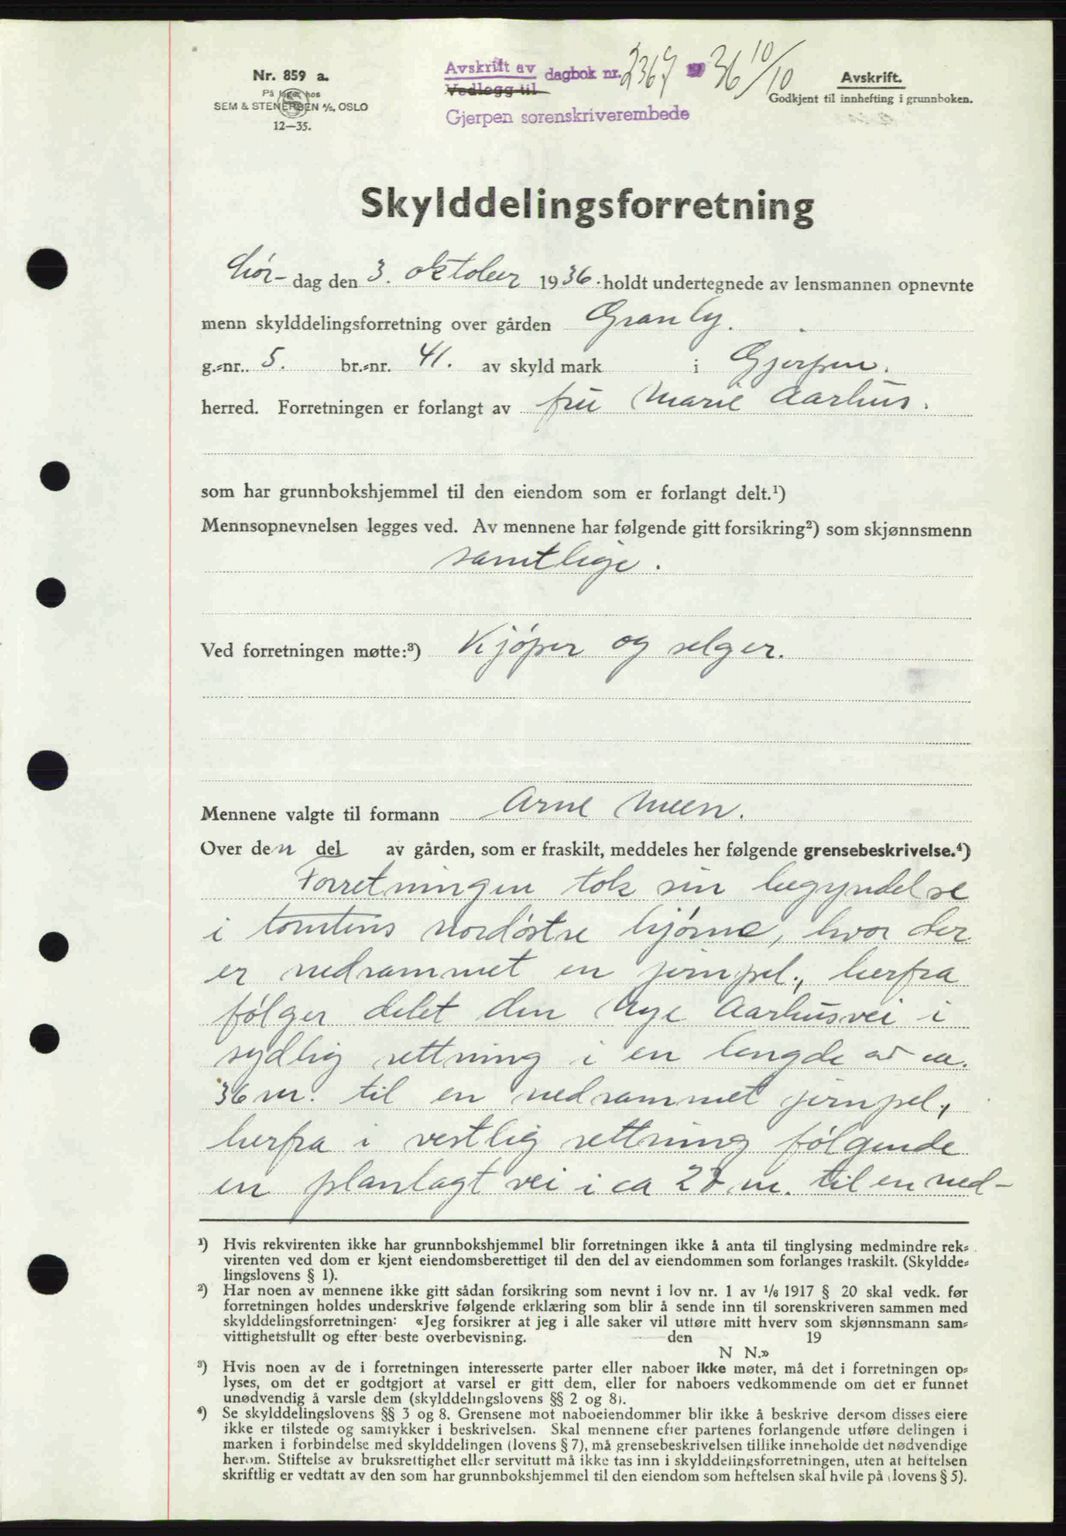 Nr. 859 a.
På lager hos
SEM & STENERSEN A/S, OSLO
12—35.
Avskrift av dagbok nr. 2367 1936 10/10
Vedlegg til
Gjerpen sorenskriverembede
Avskrift.
Godkjent til innhefting i grunnboken.
Skylddelingsforretning
Lør-dag den 3. oktober 1936. holdt undertegnede av lensmannen opnevnte
menn skylddelingsforretning over gården Granly.
g.-nr.. 5. br.-nr. 41. av skyld mark i Gjerpen.
herred. Forretningen er forlangt av fru Marie Aarhus.
som har grunnbokshjemmel til den eiendom som er forlangt delt.¹)
Mennsopnevnelsen legges ved. Av mennene har følgende gitt forsikring²) som skjønnsmenn
samtlige.
Ved forretningen møtte:³) Kjøper og selger.
Mennene valgte til formann Arne Meen.
Over den del av gården, som er fraskilt, meddeles her følgende grensebeskrivelse.⁴)
Forretningen tok sin begyndelse
i tomtens nordøstre hjørne, hvor der
er nedrammet en jernpel., herfra
følger delet den Nye Aarhusvei i
sydlig rettning i en lengde av ca.
36 m. til en nedrammet jernpel,
herfra i vestlig rettning følgende
en planlagt vei i ca m. til en ned-
¹) Hvis rekvirenten ikke har grunnbokshjemmel blir forretningen ikke å anta til tinglysing medmindre rek-
virenten ved dom er kjent eiendomsberettiget til den del av eiendommen som forlanges fraskilt. (Skyldde-
lingslovens § 1).
²) Har noen av mennene ikke gitt sådan forsikring som nevnt i lov nr. 1 av 1/6 1917 § 20 skal vedk. før
forretningen holdes underskrive følgende erklæring som blir å sende inn til sorenskriveren sammen med
skylddelingsforretningen: «Jeg forsikrer at jeg i alle saker vil utføre mitt hverv som skjønnsmann sam-
vittighetsfullt og efter beste overbevisning. den 19
N N.»
³) Hvis noen av de i forretningen interesserte parter eller naboer ikke møter, må det i forretningen op-
lyses, om det er godtgjort at varsel er gitt dem, eller for naboers vedkommende om det er funnet
unødvendig å varsle dem (skylddelingslovens §§ 2 og 8).
⁴) Se skylddelingslovens §§ 3 og 8. Grensene mot naboeiendommer blir ikke å beskrive dersom disses eiere
ikke er tilstede og samtykker i beskrivelsen. Skal mennene efter partenes forlangende utføre delingen i
marken i forbindelse med skylddelingen (lovens § 7), må grensebeskrivelsen tillike inneholde det nødvendige
herom. Stiftelse av bruksrettighet eller servitutt må ikke tas inn i skylddelingsforretningen, uten at heftelsen
skriftlig er vedtatt av den som har grunnbokshjemmel til den eiendom som heftelsen skal hvile på (lovens § 5).